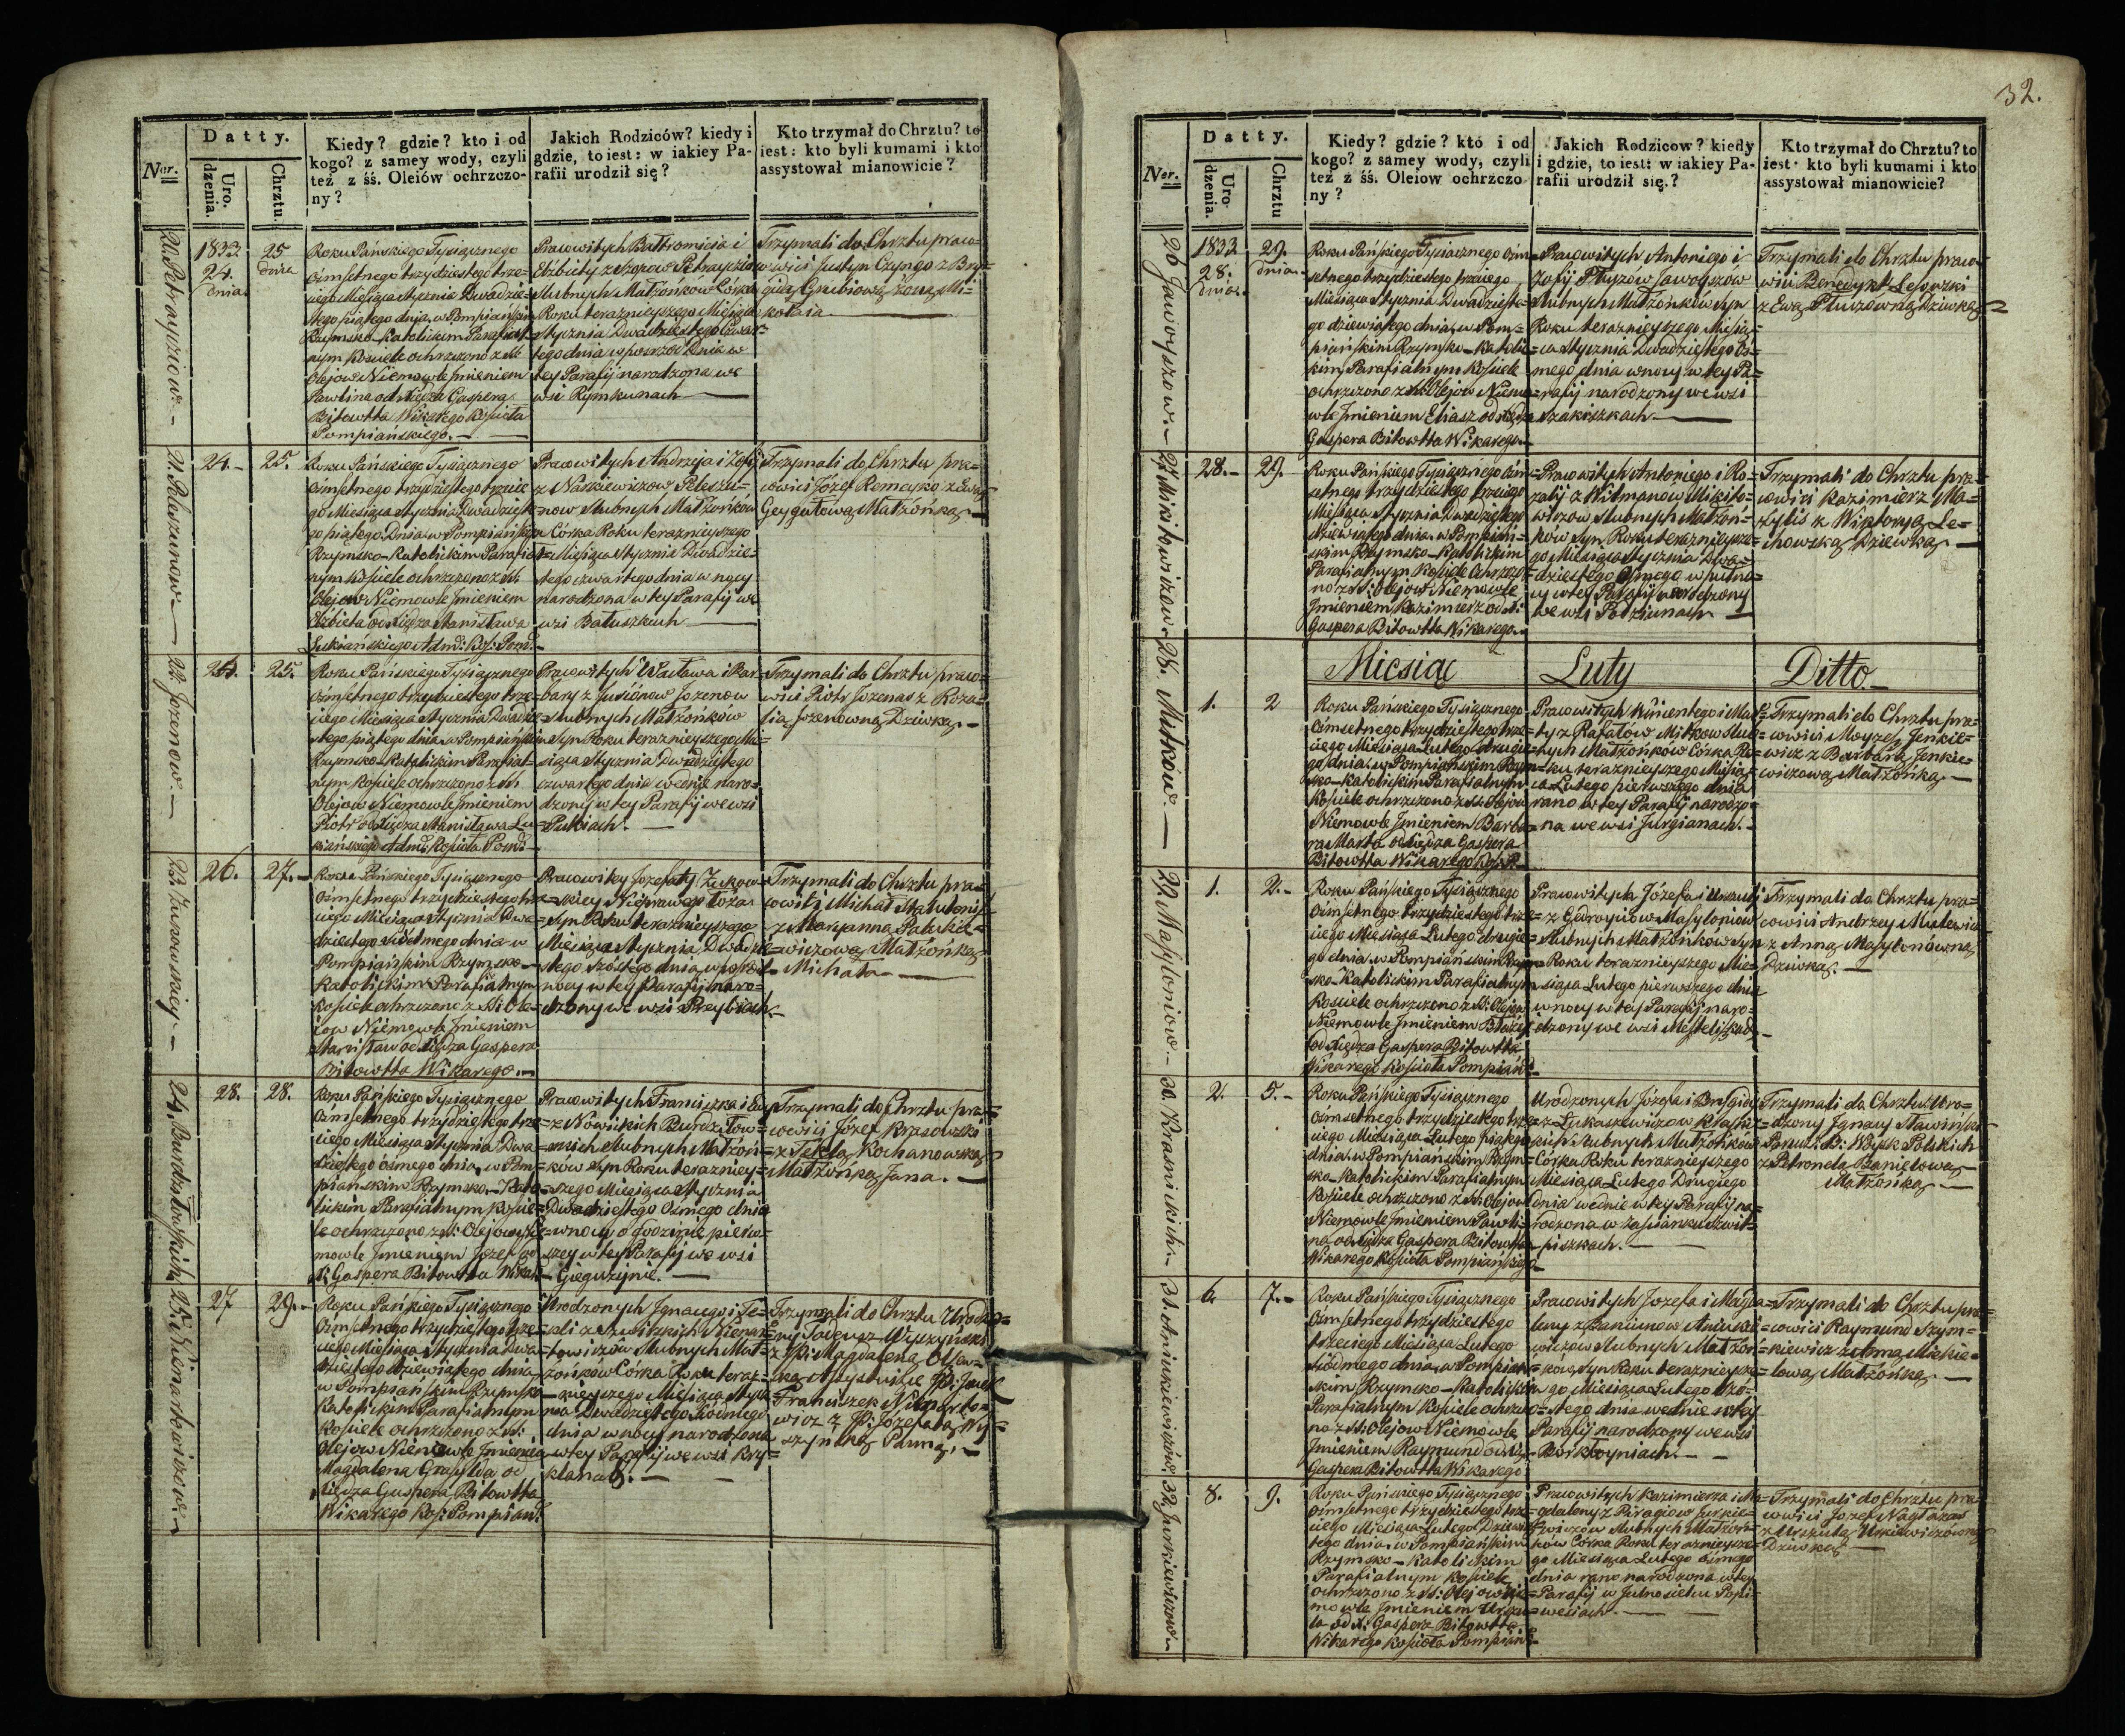 Datty.
Ner.
Uro.
dzenia.
Chrztu.
Kiedy? gdzie? kto i od
kogo? z samey wody, czyli
też z śś. Oleiów ochrzczo-
ny?
Jakich Rodziców? kiedy i
gdzie, to iest: w iakiey Pa-
rafii urodził się?
Kto trzymał do Chrztu? to
iest: kto byli kumami i kto
assystował mianowicie?
20.
1833.
24.
dnia
25
dnia
Roku Pańskiego Tysiącznego
Ośmsetnego trzydziestego trze-
ciego Miesiąca Stycznia Dwadzie-
stego piątego dnia, w Pompiańskim
Rzymsko-Katolickim Parafial-
nym Kościele ochrzczono z SS.
Olejow Niemowle Imieniem
Pawlina od Xiędza Gaspera
Bitowtta Wikarego Kościoła
Pompiańskiego.
Pracowitych Bałtromieia i
Elżbiety
Ślubnych Małżonkow Córka
Roku teraznieyszego Miesiąca
Stycznia Dwadziestego czwar-
tego dnia wposrzod Dnia w
tey Parafij narodzona we
wsi Rymkunach
Trzymali do Chrztu praco-
wici Justyn Czyngo z Bry-
gidą Grubiową żoną Mi-
kołaia.
21. Peleszunow
24.
25.
Roku Pańskiego Tysiącznego
Ośmsetnego trzydziestego trzecie
go Miesiąca Stycznia Dwadziest-
go piątego Dnia w Pompiańskim
Rzymsko-Katolickim Parafial-
nym Kościele ochrzczono z SS.
Olejow Niemowle Imieniem
Elżbieta od Xiędza Stanisława
Łukiańskiego Adm: Koś: Pom:
Pracowitych Andrzeja i Zofij
z Narkiewiczow Peleszu-
now Ślubnych Małżonków
Córka Roku teraznieyszego
Miesiąca Stycznia Dwadzie-
stego czwartego dnia w nocy
narodzona w tey Parafij we
wsi Batuszkach
Trzymali do Chrztu pra-
cowici Józef Romeyko z Ewą
Geygałową Małżonką
22. Jozenow.
24.
25.
Roku Pańskiego Tysiącznego
Ośmsetnego trzydziestego trze-
ciego Miesiąca Stycznia Dwadzie-
stego piątego dnia w Pompiańskim
Rzymsko-Katolickim Parafial-
nym Kościele ochrzczono z SS
Olejow Niemowle Imieniem
Piotr od Xiędza Stanisława Łu-
kiańskiego Adm: Kościoła Pom:
Pracowitych Wacława i Bar-
bary z Jozenow
Ślubnych Małżonków
Syn Roku teraznieyszego Mie-
siąca Stycznia Dwadziestego
czwartego dnia wednie naro-
dzony w tey Parafij we wsi
Pukiach.
Trzymali do Chrztu praco-
wici Piotr Jozenas z Roza-
lią Jozenowną Dziewką.
23. Żukowskiey.
26.
27.
Roku Pańskiego Tysiącznego
Ośmsetnego trzydziestego trze
ciego Miesiąca Stycznia Dwa-
dziestego Siódmego dnia w
Pompiańskim Rzymsko-
Katolickim Parafialnym
Kościele ochrzczono z SS: Ole-
iow Niemowle Imieniem
Stanisław od Xiędza Gaspera
Bitowtta Wikarego.
Pracowitey Jozefaty Żukow-
skiey Nieprawego łoża
Syn Roku teraznieyszego
Miesiąca Stycznia Dwadzie-
stego Szóstego dnia w posrod
nocy w tey Parafij naro-
dzony we wsi
Trzymali do Chrztu pra-
cowity Michał
z Maryanną
wiczową Małżonką
Michała
24. Burdziłowskich
28.
28.
Roku Pańskiego Tysiącznego
Ośmsetnego trzydziestego trze-
ciego Miesiąca Stycznia Dwa-
dziestego ósmego dnia, w Pom-
piańskim Rzymsko-Kato-
lickim Parafialnym Koście-
le ochrzczono z SS: Olejow Nie-
mowle Imieniem Jozef od
X: Gaspera Bitowtta Wikar:
Pracowitych Franciszka i Ewy
z Nowickich Burdziłow-
skich Ślubnych Małżon-
ków Syn Roku terazniey-
szego Miesiąca Stycznia
Dwadziestego Ósmego dnia
w nocy o Godzinie pierw-
szey w tey Parafij we wsi
Gieguzynie.
Trzymali do Chrztu pra-
cowici Józef Krasowski
z Teklą Kochanowską
Małżonką Jana.
25.
27
29.
Roku Pańskiego Tysiącznego
Ośmsetnego trzydziestego trze-
ciego Miesiąca Stycznia Dwa-
dziestego dziewiątego dnia
w Pompiańskim Rzymsko-
Katolickim Parafialnym
Kościele ochrzczono z SS:
Olejow Niemowle Imieniem
Magdalena od
Xiędza Gaspera Bitowtta
Wikarego Koś: Pompiań:
Urodzonych Ignacego i Te-
kli
Ślubnych Mał-
żonków Córka Roku teraz-
nieyszego Miesiąca Stycz
nia Dwadziestego Siódmego
dnia w nocy narodzona
w tey Parafij we wsi Kry-
klanach.
Trzymali do Chrztu Urodzo-
ny Tadeusz
z JP: Magdaleną
Assystencie JP: Jozef
Franciszek
wicz z JP: Jozefatą Wy-
szyńską Panną.
32.
Datty.
Ner.
Uro-
dzenia.
Chrztu
Kiedy? gdzie? któ i od
kogo? z samey wody, czyli
też z śś. Oleiow ochrzczo
ny?
Jakich Rodzicow? kiedy
i gdzie, to iest: w iakiey Pa-
rafii urodził się.?
Kto trzymał do Chrztu? to
iest: kto byli kumami i kto
assystował mianowicie?
26 Jawoyszow.
1833
28.
dnia.
29.
dnia.
Roku Pańskiego Tysiącznego Ośm-
setnego trzydziestego trzeciego
Miesiąca Stycznia Dwadzieste-
go dziewiątego dnia, w Pom-
piańskim Rzymsko-Katolic-
kim Parafialnym Kościele
ochrzczono z SS. Olejow Niemo-
wle Imieniem Eliasz od Xiędza
Gaspera Bitowtta Wikarego.
Pracowitych Antoniego i
Zofij Jawoyszow
Ślubnych Małżonków Syn
Roku teraznieyszego Miesią-
ca Stycznia Dwadziestego Ós-
mego dnia w nocy w tey Pa-
rafij narodzony we wsi
Szakiszkach
Trzymali do Chrztu praco-
wici Benedykt
z Ewą Dziewką
27 Mikitowiczow.
28.
29.
Roku Pańskiego Tysiącznego Ośm-
setnego trzydziestego trzeciego
Miesiąca Stycznia Dwadziestego
dziewiątego dnia w Pompiań-
skim Rzymsko-Katolickim
Parafialnym Kościele Ochrzczo-
no z SS: Olejow Niemowle
Imieniem Kazimierz od X:
Gaspera Bitowtta Wikarego.
Pracowitych Antoniego i Ro-
zalij z Witmanow Mikito-
wiczow Ślubnych Małżon-
ków Syn Roku teraznieysze-
go Miesiąca Stycznia Dwa-
dziestego Ósmego w
w tey Parafij narodzony
we wsi Podziunach
Trzymali do Chrztu pra-
cowici Kazimierz Ma-
żylis z Wiktoryą Le-
nowską Dziewką
Miesiąc Luty Ditto
28. Mitkow.
1.
2
Roku Pańskiego Tysiącznego
Ośmsetnego trzydziestego trze-
ciego Miesiąca Lutego drugie-
go dnia, w Pompiańskim Rzym-
sko-Katolickim Parafialnym
Kościele ochrzczono z SS. Olejow
Niemowle Imieniem Barba-
ra Marta od Xiędza Gaspera
Bitowtta Wikarego
Pracowitych Wincentego i Mar-
ty z Rafałów Mitkow Ślub-
nych Małżonków Córka Ro-
ku teraznieyszego Miesią-
ca Lutego pierwszego dnia
rano w tey Parafij narodzo-
na we wsi Jurgianach.
Trzymali do Chrztu pra-
cowici Moyzesz Jenkie-
wicz z Barbarą Jenkie-
wiczową Małżonką.
29 Masyloniow.
1.
2.
Roku Pańskiego Tysiącznego
Ośmsetnego trzydziestego trze-
ciego Miesiąca Lutego drugie-
go dnia, w Pompiańskim Rzym-
sko-Katolickim Parafialnym
Kościele ochrzczono z SS: Olejow
Niemowle Imieniem Błażej
od Xiędza Gaspera Bitowtta
Wikarego Kościoła Pompiań:
Pracowitych Józefa i Urszuli
z Gedroyciow Masyloniow
Ślubnych Małżonków Syn
Roku teraznieyszego Mie-
siąca Lutego pierwszego dnia
w nocy w tey Parafij naro-
dzony we wsi
Trzymali do Chrztu pra-
cowici Andrzey
z Anną Masylonówną
Dziewką.
30. Krasnickich.
2.
5.
Roku Pańskiego Tysiącznego
Ośmsetnego trzydziestego trze-
ciego Miesiąca Lutego piątego
dnia w Pompiańskim Rzym-
sko-Katolickim Parafialnym
Kościele ochrzczono z SS: Olejow
Niemowle Imieniem Pawli-
na od Xiędza Gaspera Bitowtta
Wikarego Kościoła Pompiańskiego
Urodzonych Józefa i Brygidy
z Łukaszewiczow Krasnic-
kich Ślubnych Małżonków
Córka Roku teraznieyszego
Miesiąca Lutego Drugiego
dnia wednie w tey Parafij na-
rodzona w Zaścianku
piszkach.
Trzymali do Chrztu Uro-
dzony Ignacy
Woysk Polskich
z Petronelą Danielową
Małżonką
31 Aniukiewiczów.
6.
7.
Roku Pańskiego Tysiącznego
Ośmsetnego trzydziestego
trzeciego Miesiąca Lutego
Siódmego dnia w Pompiań-
skim Rzymsko-Katolickim
Parafialnym Kościele ochrzczo-
no z SS: Olejow Niemowle
Imieniem Raymund od Xię:
Gaspera Bitowtta Wikarego
Pracowitych Jozefa i Magda-
leny Aniukie-
wiczow Ślubnych Małżon-
ków Syn Roku teraznieysze-
go Miesiąca Lutego Szó-
stego dnia wednie w tey
Parafij narodzony we wsi
Borkloyniach.
Trzymali do Chrztu pra-
cowici Raymund Szym-
kiewicz z Anną Mickie-
lową Małżonką.
32. Jurkiewiczow.
8.
9.
Roku Pańskiego Tysiącznego
Ośmsetnego trzydziestego trze-
ciego Miesiąca Lutego Dziewią-
tego dnia, w Pompiańskim
Rzymsko-Katolickim
Parafialnym Kościele
ochrzczono z SS: Olejow Nie-
mowle Imieniem Urszu-
la od X: Gaspera Bitowtta
Wikarego Kościoła Pompiań:
Pracowitych Kazimierza i Ma-
gdaleny z Jurkie-
wiczów Ślubnych Małżon-
ków Córka Roku teraznieysze-
go Miesiąca Lutego ósmego
dnia rano narodzona w tey
Parafij w
weciach.
Trzymali do Chrztu pra-
cowici Jozef
z Urszulą Urkiewiczówną
Dziewką